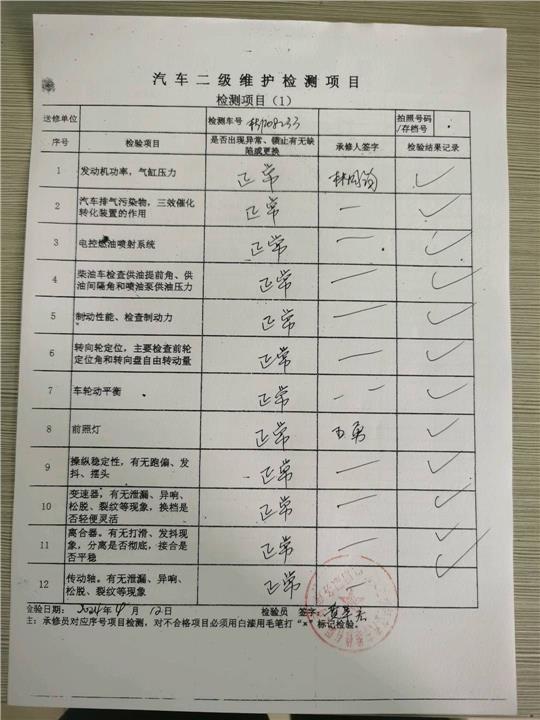 汽车二级维护检测项目
检测项目（1）
送修单位 检测车号 拍照号码/存档号
序号 检验项目 是否出现异常、锁止有无缺陷或更换 承修人签字 检验结果记录
1 发动机功率，气缸压力 正常 ✓
2 汽车排气污染物，三效催化转化装置的作用 正常 — ✓
3 电控燃油喷射系统 正常 — ✓
4 柴油车检查供油提前角、供油间隔角和喷油泵供油压力 正常 — ✓
5 制动性能、检查制动力 正常 — ✓
6 转向轮定位，主要检查前轮定位角和转向盘自由转动量 正常 — ✓
7 车轮动平衡 正常 — ✓
8 前照灯 正常 ✓
9 操纵稳定性，有无跑偏、发抖、摆头 正常 — ✓
10 变速器，有无泄漏、异响、松脱、裂纹等现象，换档是否轻便灵活 正常 — ✓
11 离合器。有无打滑、发抖现象，分离是否彻底，接合是否平稳 正常 — ✓
12 传动轴。有无泄漏、异响、松脱、裂纹等现象 正常 — ✓
检验日期：2024年4月12日 检验员 签字：
主：承修员对应序号项目检测，对不合格项目必须用白漆用毛笔打“×”标记检验。